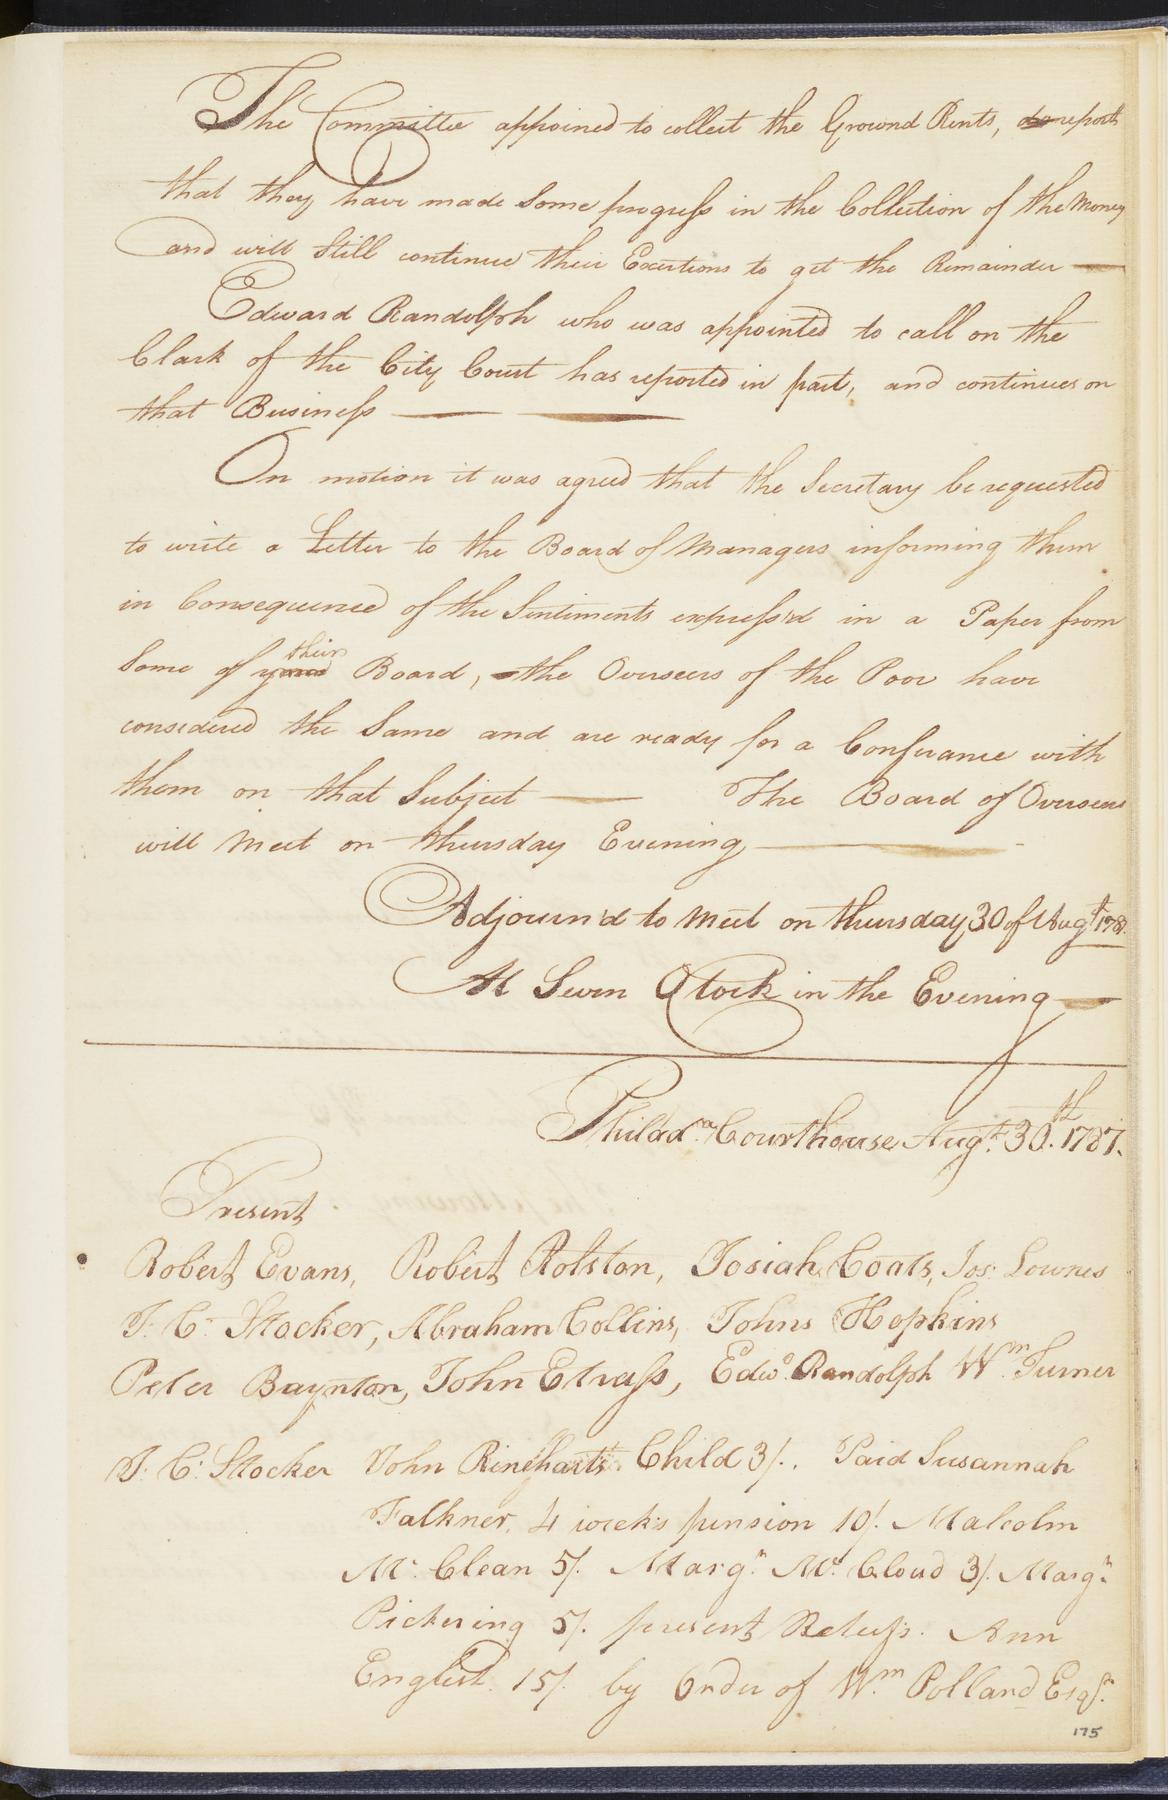 The Committee appoined to collect the Ground Rents, do report
that they have made Some progress in the Collection of the Money
and will Still continue their Exertions to get the Remainder
Edward Randolph who was appointed to call on the
Clark of the City Court has reported in part, and continues on
that Business
On motion it was agreed that the Secretary be requested
to write a Letter to the Board of Managers informing them
in Consequence of the Sentiments express'd in a Paper from
their
Some of your Board, the Overseers of the Poor have
considered the Same and are ready for a Conferance with
them on that Subject The Board of Overseers
will Meet on thursday Evening
Adjourn'd to Meet on thursday 30 of Augt 178
At Seven OClock in the Evening
Philada. Courthouse Augt. 30th. 1787.
Present
Robert Evans, Robert Rolston, Josiah Coats, Jos: Lownes
J. C. Stocker, Abraham Collins, Johns Hopkins
Peter Baynton, John Elvass, Edwd. Randolph Wm. Turner
J: C: Stocker John Rineharts Child 3/. Paid Susannah
Falkner, 4 weeks pension 10/. Malcolm
Mc. Clean 5/. Margt. Mc. Cloud 3/. Margt.
Pickering 5/. present Releifs. Ann
English. 15/. by Order of Wm. Polland Esqr.
175